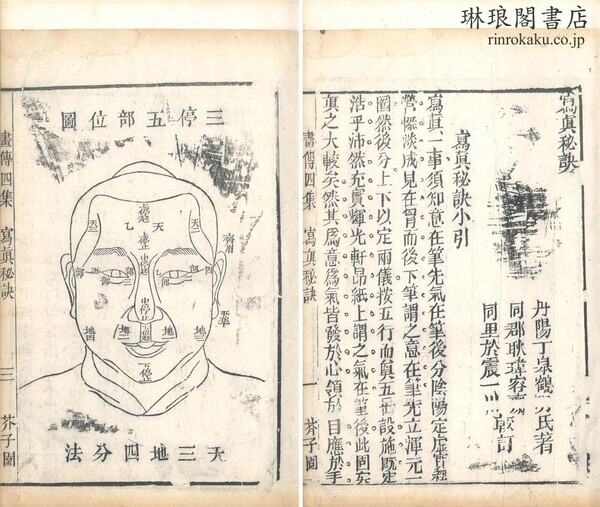 琳琅閣書店
rinrokaku.co.jp
寫眞秘訣
丹陽丁皋鶴 氏著
同郡耿瑋容
同里於震一 訂
寫眞秘訣小引
寫眞一事須知意在筆先氣在筆後分陰陽定虛實經
營慘淡成見在胷而後下筆謂之意在筆先立渾元一
圈然後分上下以定兩儀按五行而眞五岳設施既定
浩乎沛然充實輝光軒昂紙上謂之氣在筆後此固寫
眞之大較矣然其爲意爲氣皆發於心領於目應於手
畫傳四集 寫眞秘訣 芥子園
三停五部位圖
天
齊眉
地四
地三
地三
地四
天三地四分法
畫傳四集 寫眞秘訣 三 芥子園